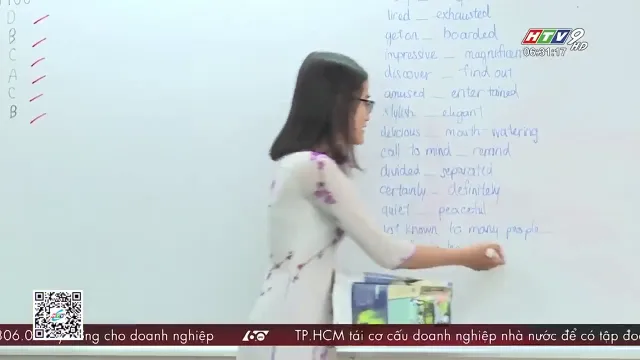 D
B
C
A
C
B
tired _ exhausted
get on _ boarded
impressive _ magnificent
discover _ find out
amused _ entertained
stylish _ elegant
delicious _ mouth-watering
call to mind _ remind
divided _ separated
certainly _ definitely
quiet _ peaceful
not known to many people _
HTV9 HD
06:31:17
cho doanh nghiệp
TP.HCM tái cơ cấu doanh nghiệp nhà nước để có tập đo